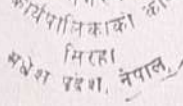 कार्यपालिकाको का
सिरहा
मधेश प्रदेश, नेपाल